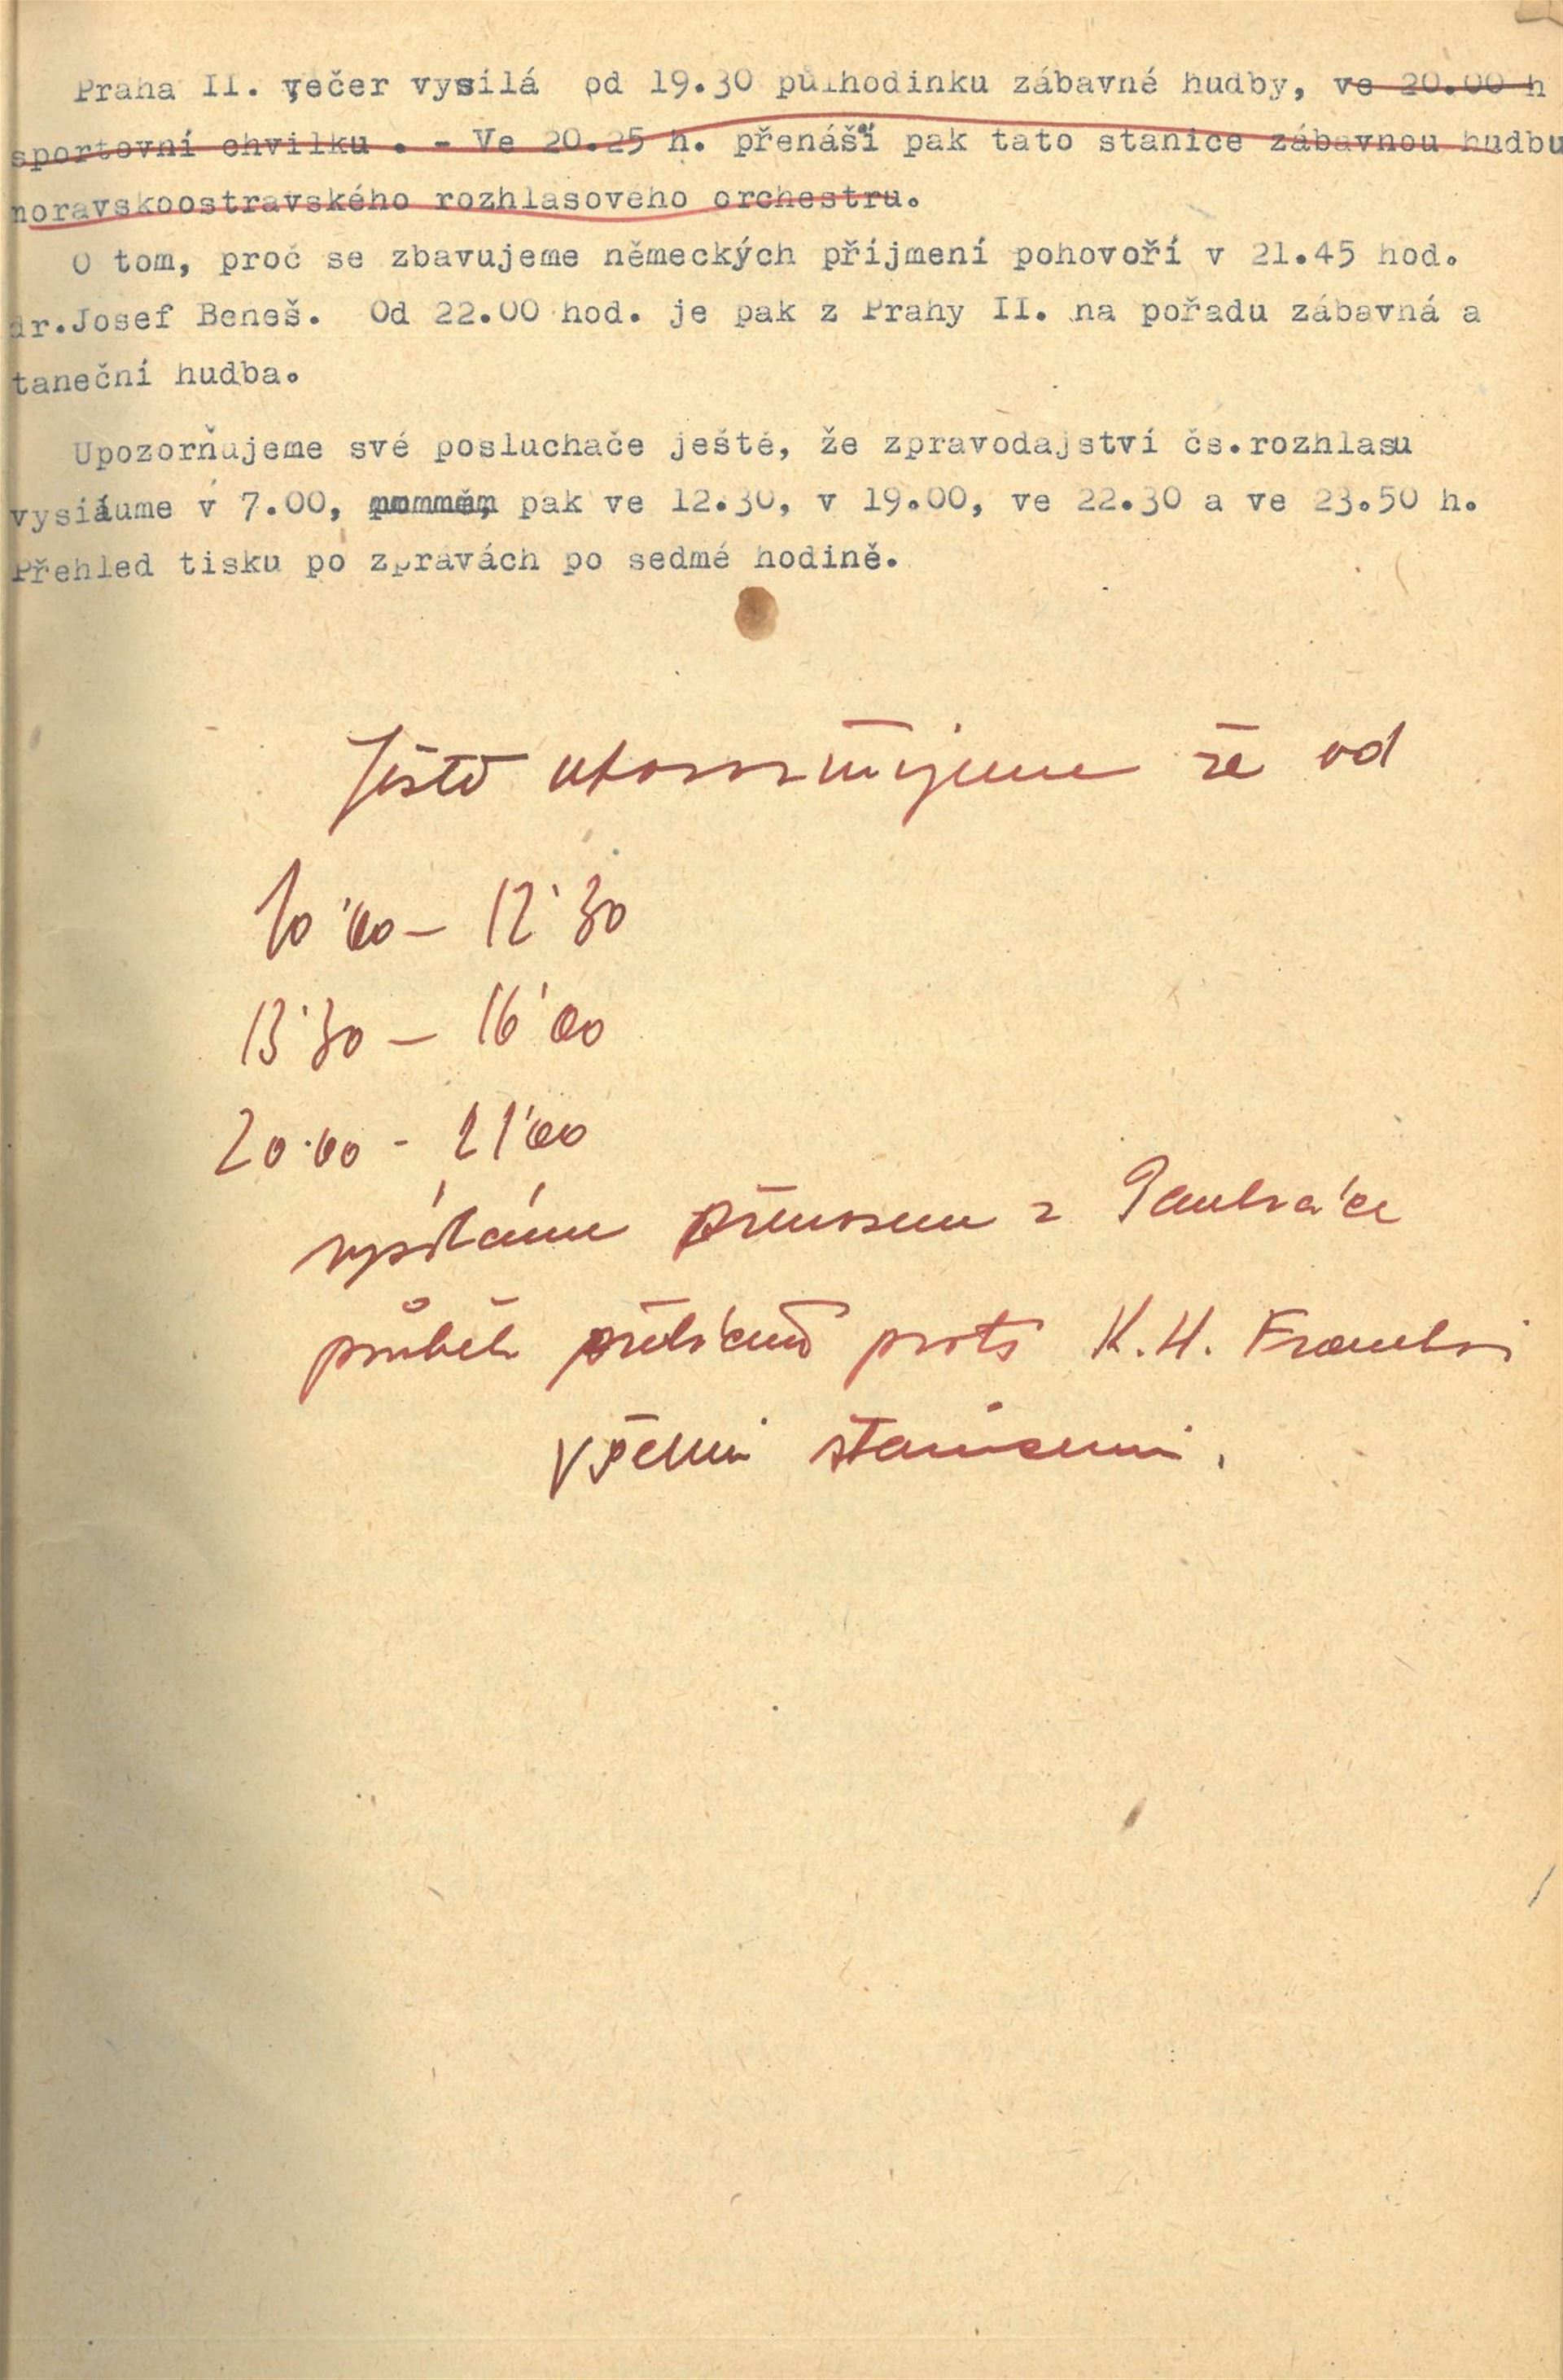 Praha II. večer vysílá od 19.30 půlhodinku zábavné hudby, ve 20.00 h
sportovní chvilku . - Ve 20.25 h. přenáší pak tato stanice zábavnou hudbu
moravskoostravského rozhlasového orchestru.
O tom, proč se zbavujeme německých příjmení pohovoří v 21.45 hod.
dr.Josef Beneš. Od 22.00 hod. je pak z Prahy II. na pořadu zábavná a
taneční hudba.
Upozorňujeme své posluchače ještě, že zpravodajství čs.rozhlasu
vysíláme v 7.00, pak ve 12.30, v 19.00, ve 22.30 a ve 23.50 h.
Přehled tisku po zprávách po sedmé hodině.
Ještě upozorňujeme že od
10'00 — 12'30
13'30 — 16'00
20.00 - 21'00
vysíláme přenosem z Pankráce
průběh přelíčení proti K.H. Frankovi
všemi stanicemi.